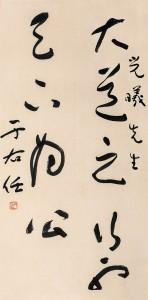 大道之行也
觉曦先生
天下为公
于右任